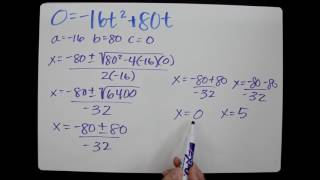 0=-16t²+80t
a=-16 b=80 c=0
x=-80±√80²-4(-16)(0)
2(-16)
x=-80±√6400
-32
x=-80±80
-32
x=-80+80
-32
x=-80-80
-32
x=0 x=5
EXPO